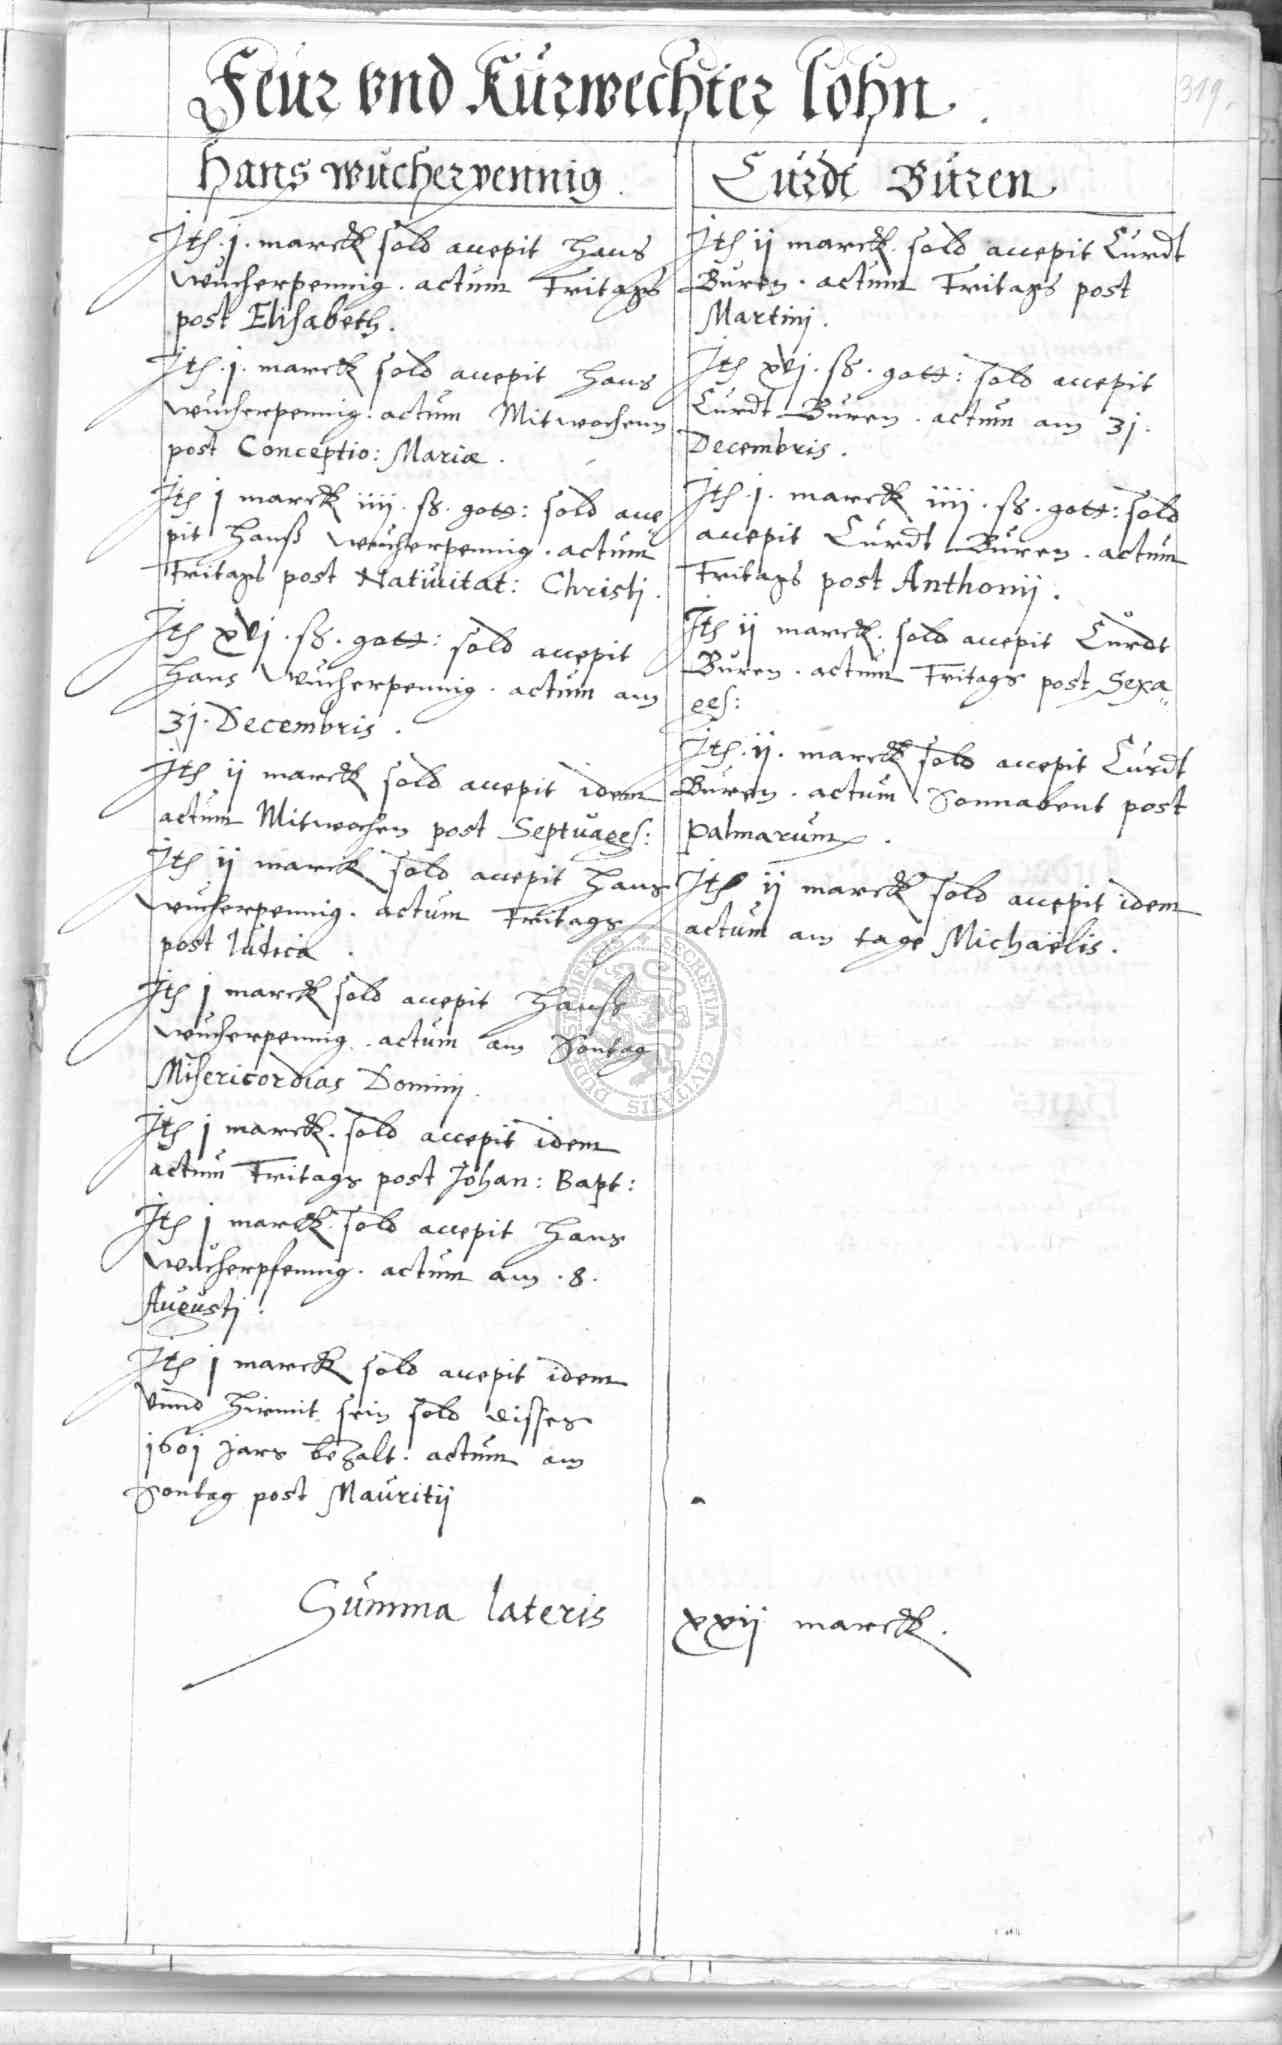 319.
Feur vnd Kurwechter lohn.
Hans wucherpennig.
Jtē. j. marck sold accepit Hans
wucherpennig. actum Fritags
post Elisabeth.
Jtē. j. marck sold accepit Hans
wucherpennig. actum Mitwochenn
post Conceptio: Mariæ.
Jtē j marck iiij. ß. gott: sold acce
pit Hanß wucherpennig. actum
Fritags post Natiuitat: Christj.
Jtē xvj. ß. gott: sold accepit
Hans wucherpennig. actum am
3j. Decembris.
Jtē ij marck sold accepit idem
actum Mitwochen post Septuages:
Jtē ij marck sold accepit Hans
wucherpennig. actum Fritags
post Iudica.
Jtē j marck sold accepit Hanß
wucherpennig. actum am Sontag
Misericordias Dominj.
Jtē j marck. sold accepit idem
actum Fritags post Johan: Bapt:
Jtē j marck. sold accepit Hans
wucherpfennig. actum am. 8.
Augustj.
Jtē j marck sold accepit idem
vnnd hirmit sein sold disses
j60j jars bezalt. actum am
Sontag post Mauritij
Curdt Buren
Jtē ij marck. sold accepit Curdt
Buren. actum Fritags post
Martinj.
Jtē xvj. ß. gott: sold accepit
Curdt Buren. actum am 3j.
Decembris.
Jtē. j. marck iiij. ß. gott: sold
accepit Curdt Buren. actum
Fritags post Anthonij.
Jtē ij marck. sold accepit Curdt
Buren. actum Fritags post Sexa„
ges:
Jtē. ij. marck sold accepit Curdt
Buren. actum Sonnabent post
Palmarum.
Jtē ij marck sold accepit idem
actum am tage Michaëlis.
Summa lateris xxij marck.
SECRETUM CIVITATIS